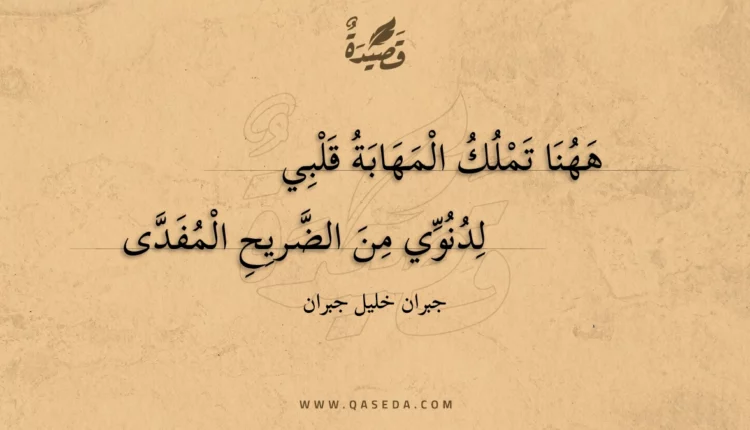 قَصِيْدَةٌ
هَهُنَا تَمْلُكُ الْمَهَابَةُ قَلْبِي
لِدُنُوِّي مِنَ الضَّريحِ الْمُفَدَّى
جبران خليل جبران
WWW.QASEDA.COM